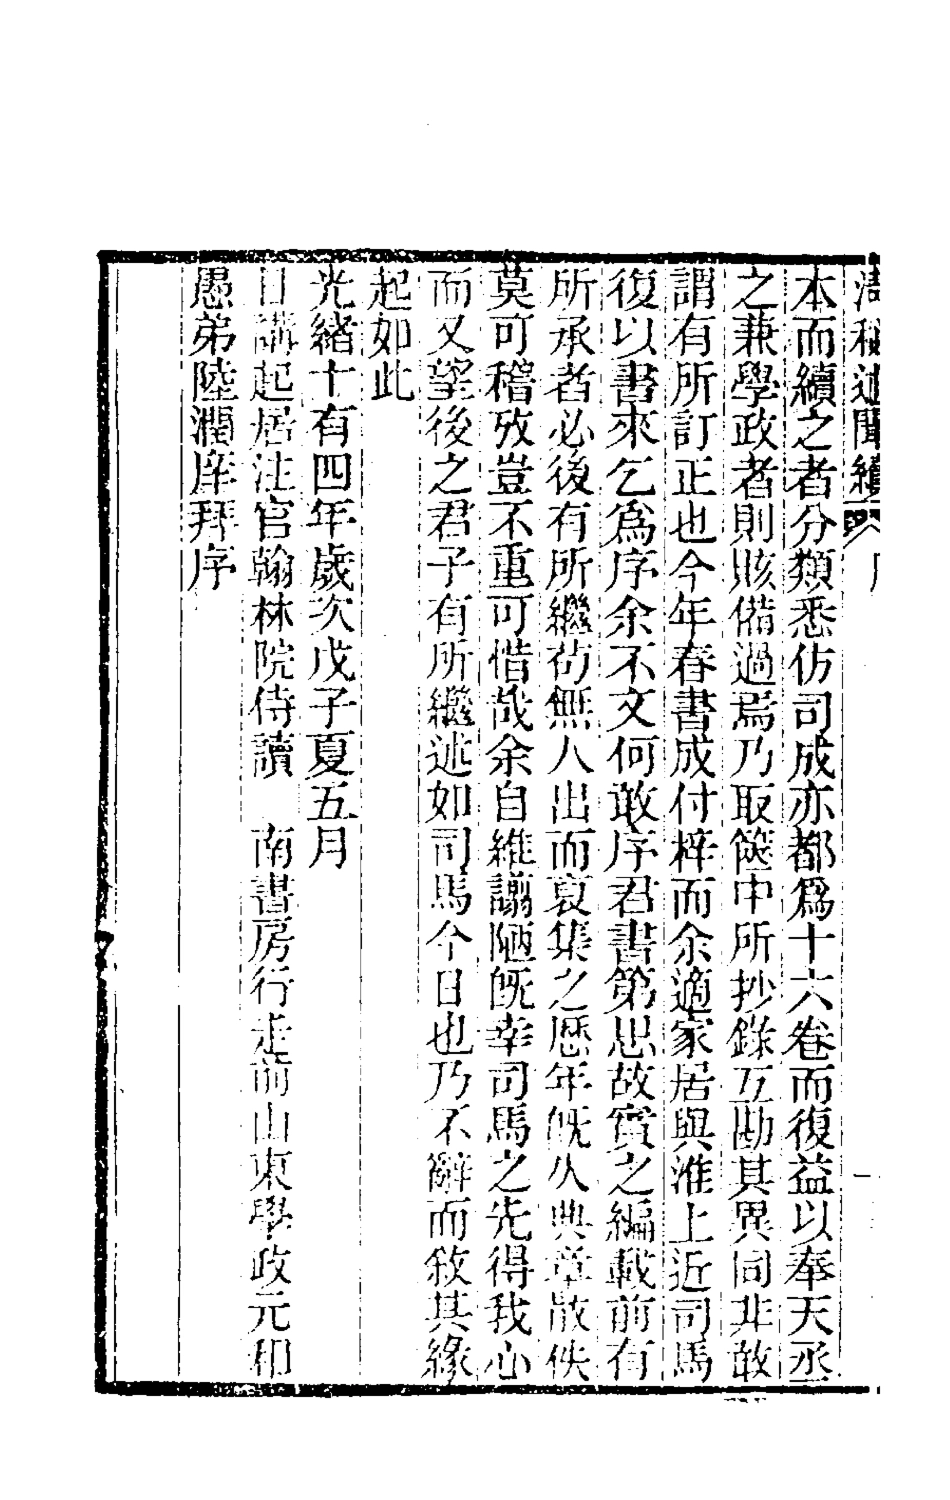 清秘述聞續 序 一
本而續之者分類悉仿司成亦都爲十六卷而復益以奉天丞
之兼學政者則賅備過焉乃取篋中所抄錄互勘其異同非敢
謂有所訂正也今年春書成付梓而余適家居與淮上近司馬
復以書來乞爲序余不文何敢序君書第思故實之編載前有
所承者必後有所繼茍無人出而裒集之歷年旣久典章散佚
莫可稽攷豈不重可惜哉余自維譾陋旣幸司馬之先得我心
而又望後之君子有所繼述如司馬今日也乃不辭而敘其緣
起如此
光緒十有四年歲次戊子夏五月
日講起居注官翰林院侍讀　南書房行走前山東學政元和
愚弟陸潤庠拜序